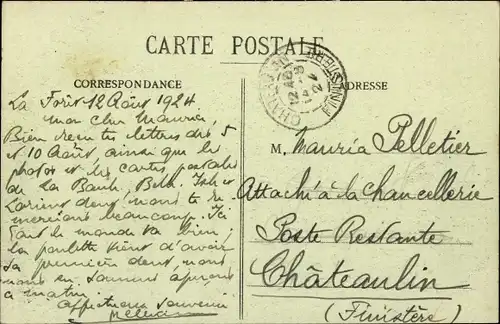 CARTE POSTALE
CORRESPONDANCE
ADRESSE
La Forêt 12 Août 1924
mon cher Maurice,
Bien reçu tes lettres des 5
et 10 Août, ainsi que les
photos et les cartes postales
de La Baule, Belle Isle et
Lorient dont nous te re-
mercions beaucoup. Ici
tout le monde va bien ;
la poulette vient d'avoir
sa première dent, nous
nous en sommes aperçus
ce matin
affectueux souvenir
M. Mauria Pelletier
Attaché à la chancellerie
Poste Restante
Châteaulin
(Finistère)
FINISTERE